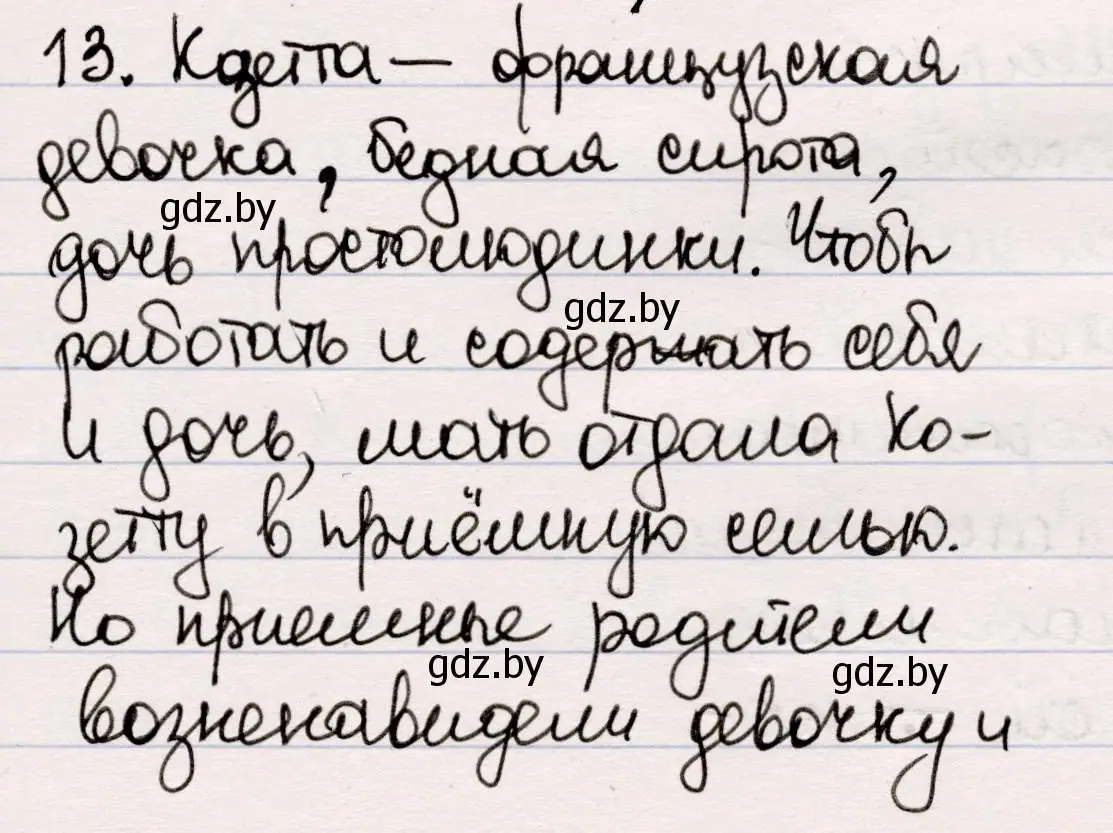 13. Козетта — французская
девочка, бедная сирота,
gdz.by
дочь простолюдинки. Чтобы
gdz.by
работать и содержать себя
и дочь, мать отдала Ко-
зетту в приёмную семью.
Но приемные родители
gdz.by
gdz.by
возненавидели девочку и